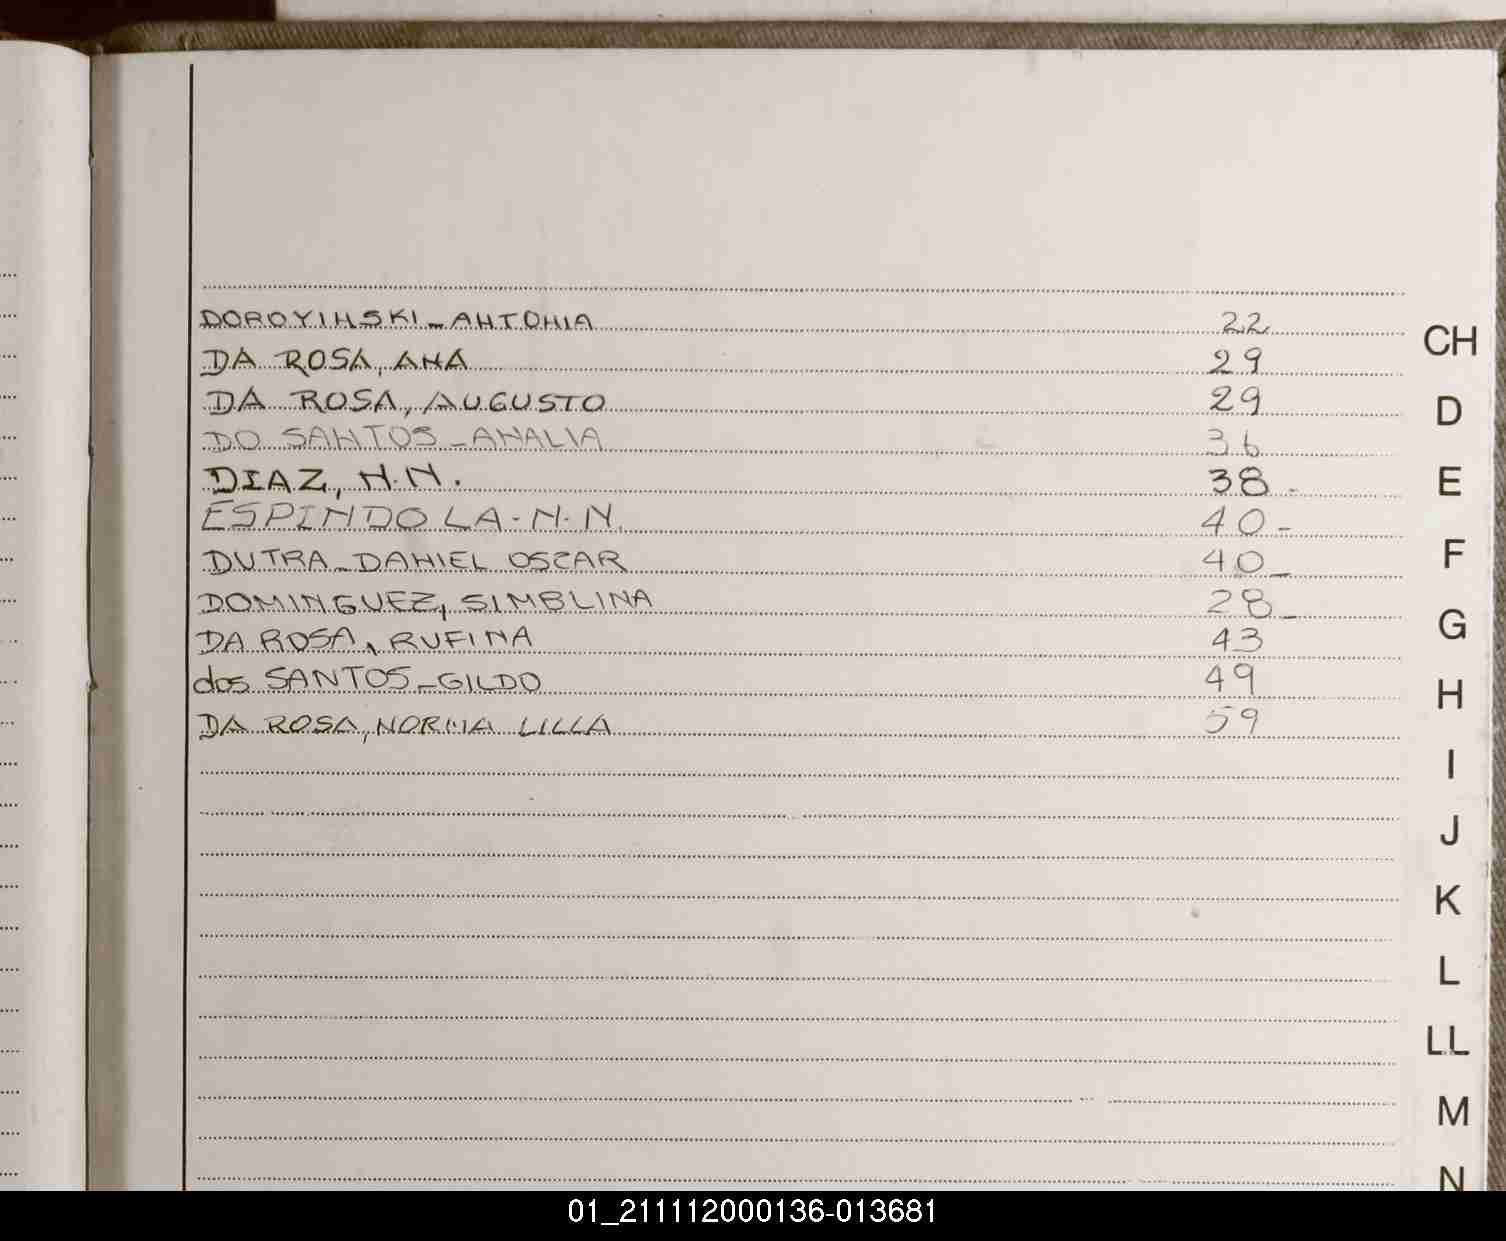 DOROYINSKI - ANTONIA 22
DA ROSA, ANA 29
DA ROSA, AUGUSTO 29
DO SANTOS - ANALIA 36
DIAZ, N.N. 38 -
ESPINDOLA - N.N. 40 -
DUTRA - DANIEL OSCAR 40 -
DOMINGUEZ, SIMBLINA 28 -
DA ROSA, RUFINA 43
dos SANTOS - GILDO 49
DA ROSA, NORMA LILLA 59
CH
D
E
F
G
H
I
J
K
L
LL
M
N
01_211112000136-013681